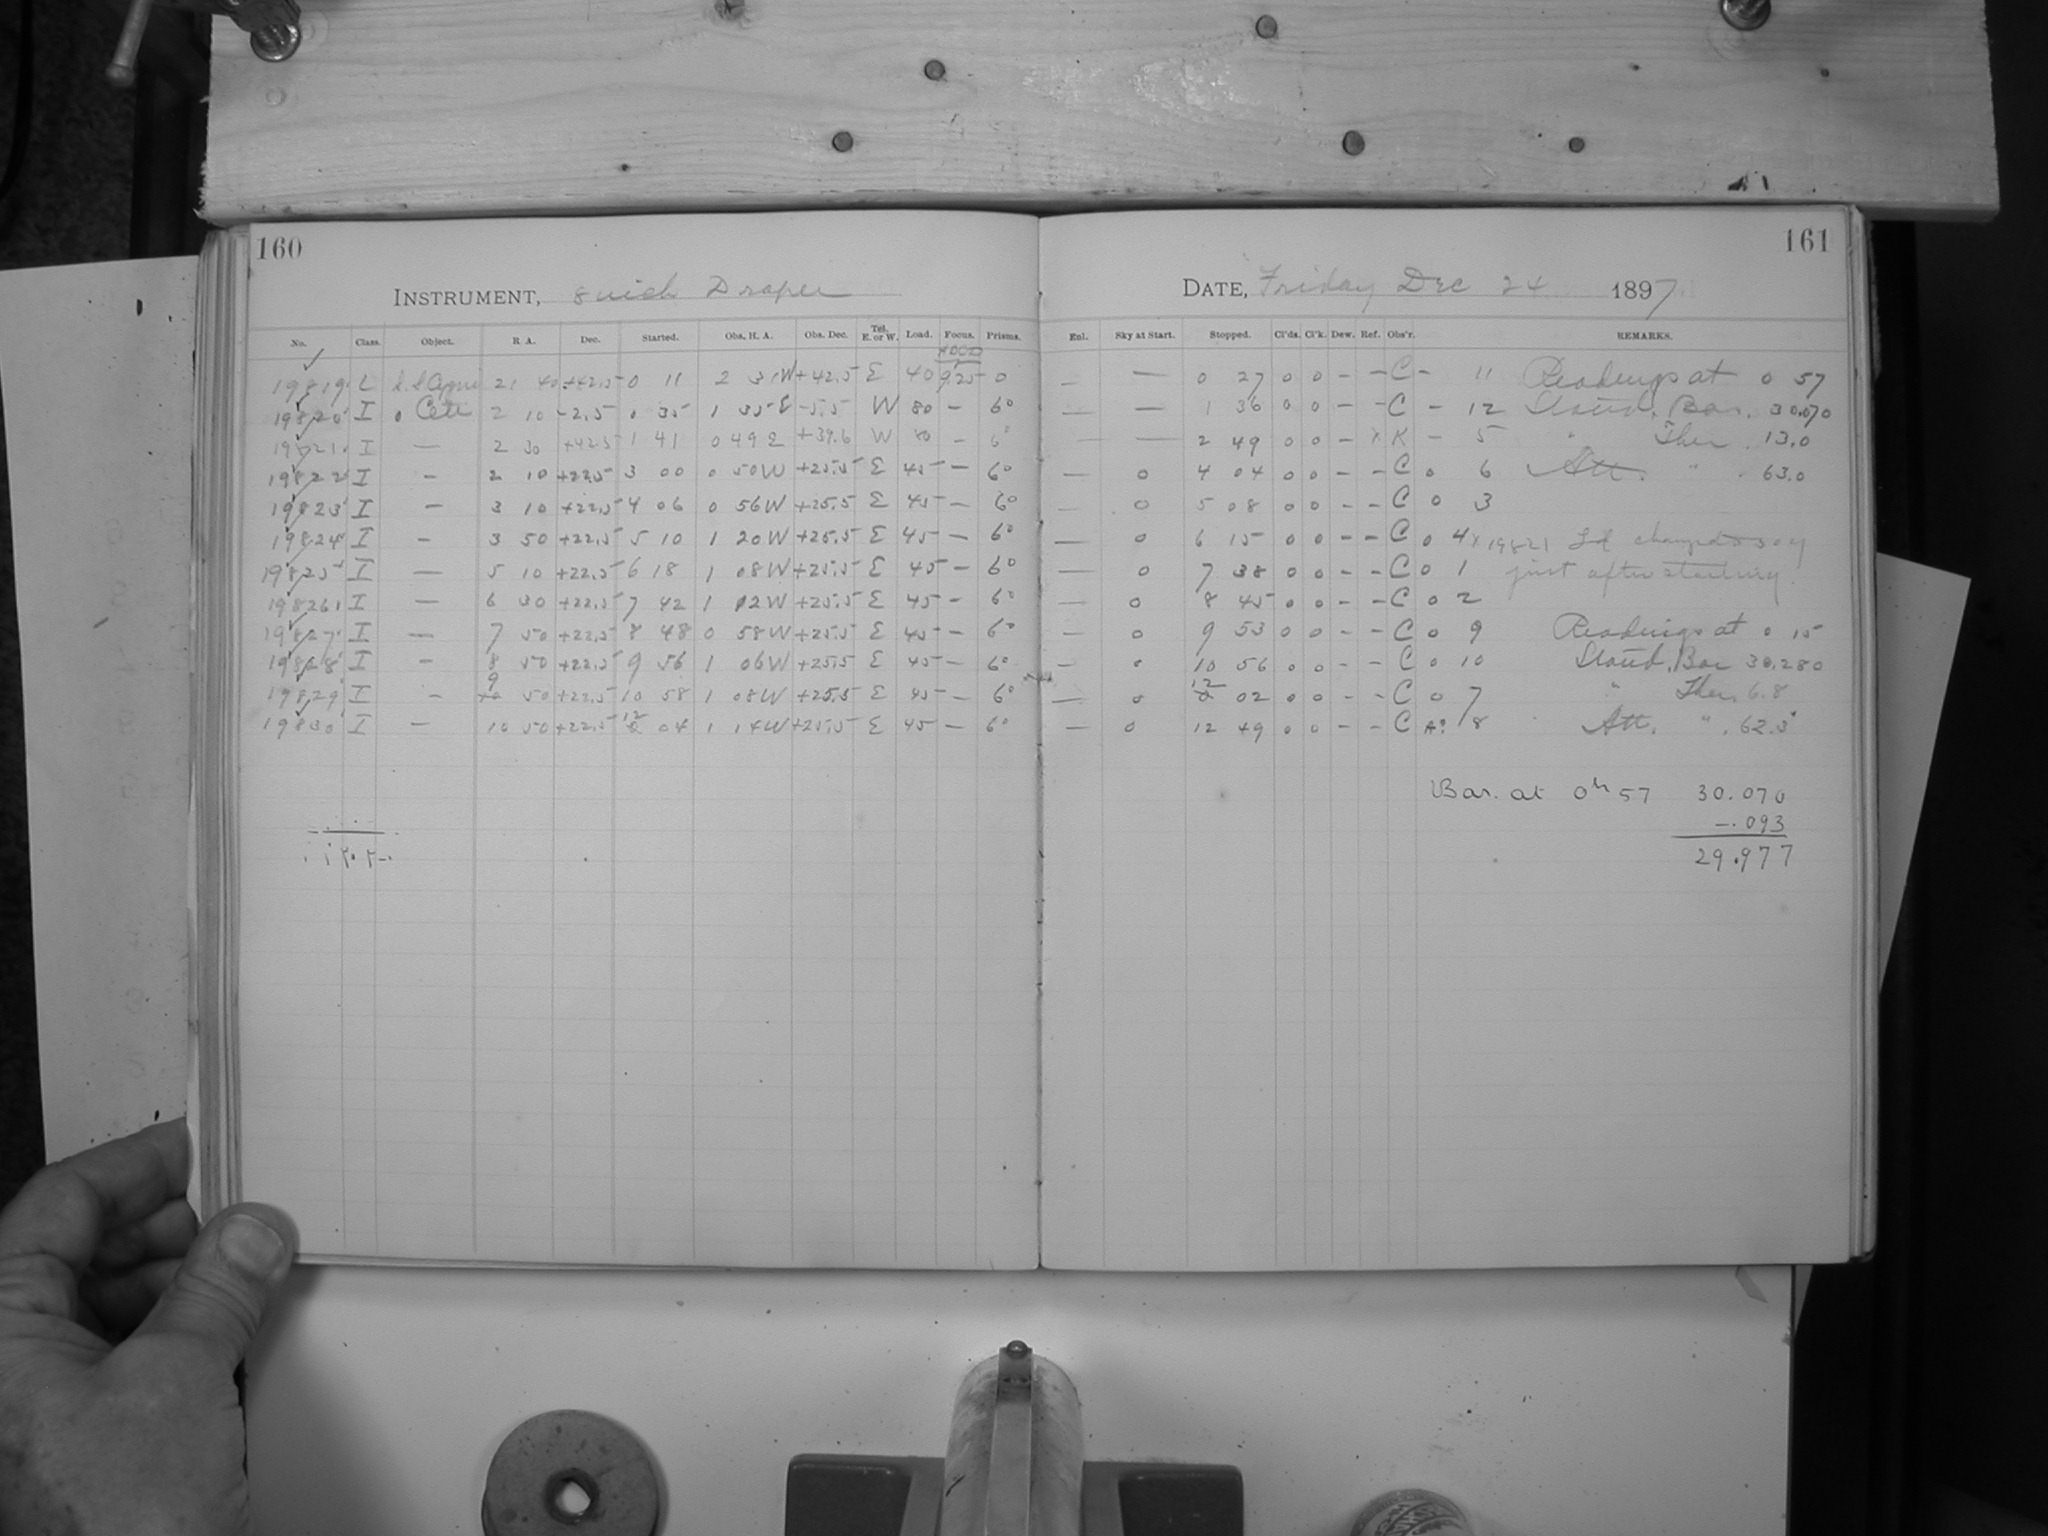 160
161
INSTRUMENT, 8 inch Draper
DATE, Friday Dec 24 1897
No. Class. Object. R A. Dec. Started. Obs. H. A. Obs. Dec. Tel. E. or W. Load. Focus. Prisms. Enl. Sky at Start. Stopped. Cl'ds. Cl'k. Dew. Ref. Obs'r. REMARKS.
19819 L 21 40 +42.5 0 11 2 31W +42.5 E 40 9.25 0 — — 0 27 0 0 - - C - 11 Readings at 0 57
19820 I o Ceti 2 10 -2.5 0 35 1 35 E -5.5 W 80 - 6° — — 1 36 0 0 - - C - 12 Stand. Bar. 30.070
19821 I — 2 30 +42.5 1 41 0 49 E +39.6 W 80 - 6° — — 2 49 0 0 - X K - 5 " Ther. 13.0
19822 I - 2 10 +22.5 3 00 0 50W +25.5 E 45 - 6° — 0 4 04 0 0 - - C 0 6 Att. " . 63.0
19823 I - 3 10 +22.5 4 06 0 56W +25.5 E 45 - 6° — 0 5 08 0 0 - - C 0 3
19824 I - 3 50 +22.5 5 10 1 20W +25.5 E 45 - 6° — 0 6 15 0 0 - - C 0 4 X 19821 Ld changed to 80
19825 I — 5 10 +22.5 6 18 1 08W +25.5 E 45 - 6° — 0 7 38 0 0 - - C 0 1 just after starting.
19826 I — 6 30 +22.5 7 42 1 12W +25.5 E 45 - 6° — 0 8 45 0 0 - - C 0 2
19827 I — 7 50 +22.5 8 48 0 58W +25.5 E 45 - 6° — 0 9 53 0 0 - - C 0 9 Readings at 0 15
19828 I - 8 50 +22.5 9 56 1 06W +25.5 E 45 - 6° — 0 10 56 0 0 - - C 0 10 Stand. Bar 30.280
19829 I - 9 50 +22.5 10 58 1 08W +25.5 E 45 - 6° — 0 12 02 0 0 - - C 0 7 " Ther. 6.8
19830 I — 10 50 +22.5 12 04 1 14W +25.5 E 45 - 6° — 0 12 49 0 0 - - C 8 Att. " . 62.5
Bar. at 0h 57 30.070
-.093
29.977